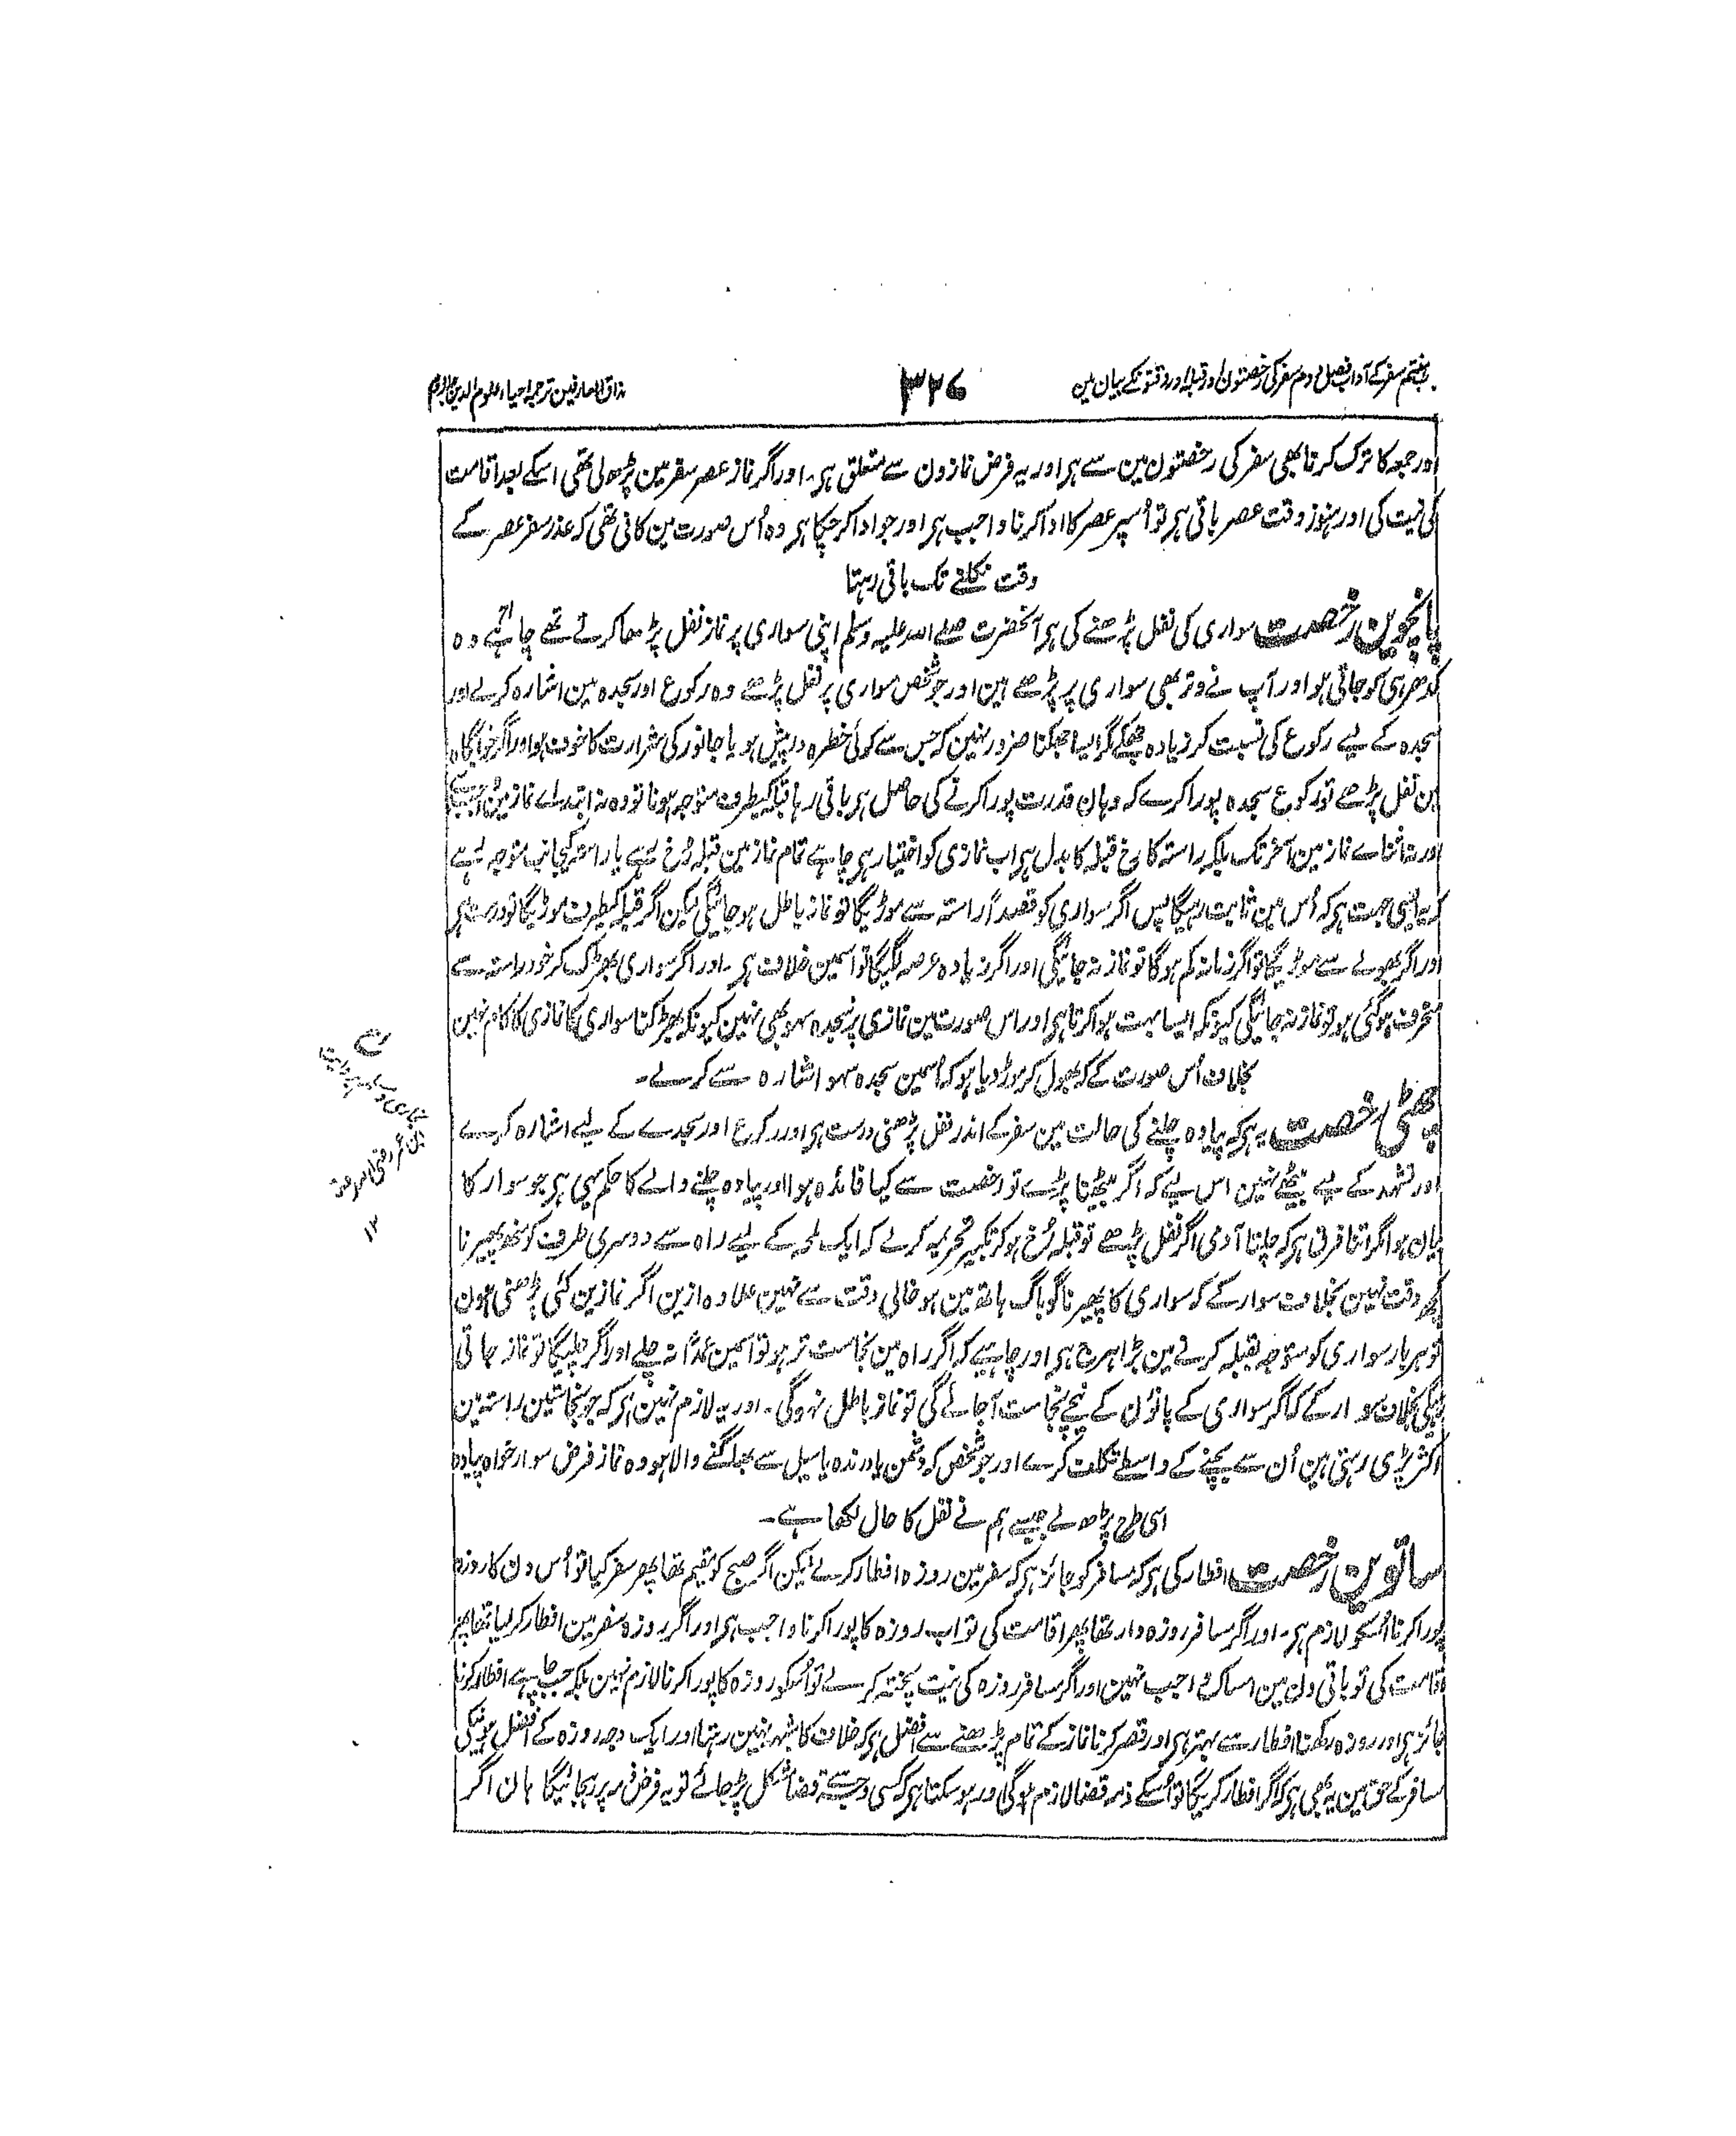 ہفتم سفر کے آداب فصل دوم سفر کی رخصتون اور قبلہ اور وقتونکے بیان مین
۳۲۶
مذاق العارفین ترجمہ احیاء علوم الدین جلد دوم
اور جمعہ کا ترک کرنا بھی سفر کی رخصتون مین سے ہی اور یہ فرض نمازون سے متعلق ہی۔ اور اگر نماز عصر سفر مین پڑھ لی تھی اسکے بعد اقامت
کی نیت کی اور ہنوز وقت عصر باقی ہی تو اُسپر عصر کا ادا کرنا واجب ہی اور جو ادا کر چکا ہی وہ اُس صورت مین کافی تھی کہ عذر سفر عصر کے
وقت نکلنے تک باقی رہتا
پانچوین رخصت سواری کی نفل پڑھنے کی ہی آنحضرت صلے اللہ علیہ وسلم اپنی سواری پر نماز نفل پڑھا کرتے تھے چاہیے وہ
کدھر ہی کو جاتی ہو اور آپ نے وتر بھی سواری پر پڑھے ہین اور جو شخص سواری پر نفل پڑھے وہ رکوع اور سجدہ مین اشارہ کرلے اور
سجدہ کے لیے رکوع کی نسبت کر زیادہ جھکے مگر ایسا جھکنا ضرور نہین کہ جس سے کوئی خطرہ درپیش ہو یا جانور کی شرارت کا خوف ہو اور اگر خوابگاہ
مین نفل پڑھے تو رکوع سجدہ پورا کرے کہ وہان قدرت پورا کرنے کی حاصل ہی باقی رہا قبلہ کیطرف متوجہ ہونا تو وہ نہ ابتداے نماز مین واجب ہے
اور نہ اثناے نماز مین آخر تک بلکہ راستہ کا رخ قبلہ کا بدل ہی اب نمازی کو اختیار ہی چاہے تمام نماز مین قبلہ رُخ رہے یا راستہ کیجانب متوجہ رہے
کہ یہ ایسی جہت ہی کہ اُس مین ثابت رہیگا پس اگر سواری کو قصداً راستہ سے موڑیگا تو نماز باطل ہو جائیگی لیکن اگر قبلہ کیطرف موڑیگا تو درست ہی
اور اگر بھولے سے موڑیگا تو اگر زمانہ کم ہوگا تو نماز نہ جائیگی اور اگر زیادہ عرصہ لگیگا تو اسمین خلاف ہی۔ اور اگر سواری بھڑک کر خود راستہ سے
منحرف ہو گئی ہو تو نماز نہ جائیگی کیونکہ ایسا بہت ہوا کرتا ہی اور اس صورت مین نمازی پر سجدہ سہو بھی نہین کیونکہ بھڑکنا سواری کا نمازی کا کام نہین
بخلاف اُس صورت کے کہ بھول کر موڑ دیا ہو کہ اُسمین سجدہ سہو اشارہ سے کرلے۔
چھٹی رخصت یہ ہی کہ پیادہ چلنے کی حالت مین سفر کے اندر نفل پڑھنی درست ہی اور رکوع اور سجدے کے لیے اشارہ کرے
اور تشہد کے لیے بیٹھے نہین اس لیے کہ اگر بیٹھنا پڑے تو رخصت سے کیا فائدہ ہوا اور پیادہ چلنے والے کا حکم وہی ہی جو سوار کا
بیان ہوا مگر اتنا فرق ہی کہ چلتا آدمی اگر نفل پڑھے تو قبلہ رُخ ہو کر تکبیر تحریمہ کرلے کہ ایک لمحہ کے لیے راہ سے دوسری طرف کو منھ پھیرنا
کچھ دقت نہین بخلاف سوار کے کہ سواری کا پھیرنا گو باگ ہاتھ مین ہو خالی دقت سے نہین علاوہ ازین اگر نمازین کئی پڑھنی ہون
تو ہر بار سواری کو متوجہ بقبلہ کرنے مین بڑا ہرج ہی اور چاہیے کہ اگر راہ مین نجاست تر ہو تو اسمین عمداً نہ چلے اور اگر چلیگا تو نماز جاتی
رہیگی بخلاف سوار کے کہ اگر سواری کے پانؤن کے نیچے نجاست آجائے گی تو نماز باطل نہوگی۔ اور یہ لازم نہین ہی کہ جو نجاستین راستہ مین
اکثر پڑی رہتی ہین اُن سے بچنے کے واسطے تکلف کرے اور جو شخص کہ دشمن یا درندہ یا سیل سے بھاگنے والا ہو وہ نماز فرض سوار خواہ پیادہ
اسی طرح پڑھ لے جیسے ہم نے نفل کا حال لکھا ہے۔
ساتوین رخصت افطار کی ہی کہ مسافر کو جائز ہی کہ سفر مین روزہ افطار کرلے لیکن اگر صبح کو مقیم تھا پھر سفر کیا تو اُس دن کا روزہ
پورا کرنا اُسکو لازم ہی۔ اور اگر مسافر روزہ دار تھا پھر اقامت کی تو اب روزہ کا پورا کرنا واجب ہی اور اگر روزہ سفر مین افطار کر لیا تھا پھر
اقامت کی تو باقی دن مین امساک واجب نہین اور اگر مسافر روزہ کی نیت پختہ کرلے تو اُسکو روزہ کا پورا کرنا لازم نہین بلکہ جب چاہے افطار کرنا
جائز ہی اور روزہ رکھنا افطار سے بہتر ہی اور قصر کرنا نماز کے تمام پڑھنے سے افضل ہی کہ خلاف کا شبہہ نہین رہتا اور ایک وجہ روزہ کے افضل ہونیکی
مسافر کے حق مین یہ بھی ہی کہ اگر افطار کریگا تو اُسکے ذمہ قضا لازم ہوگی اور ہو سکتا ہی کہ کسی وجہ سے قضا مشکل پڑ جائے تو یہ فرض ذمہ پر رہجائیگا ہان اگر
بخاری و مسلم بروایت
ابن عمر رضی اللہ عنہ
۱۲